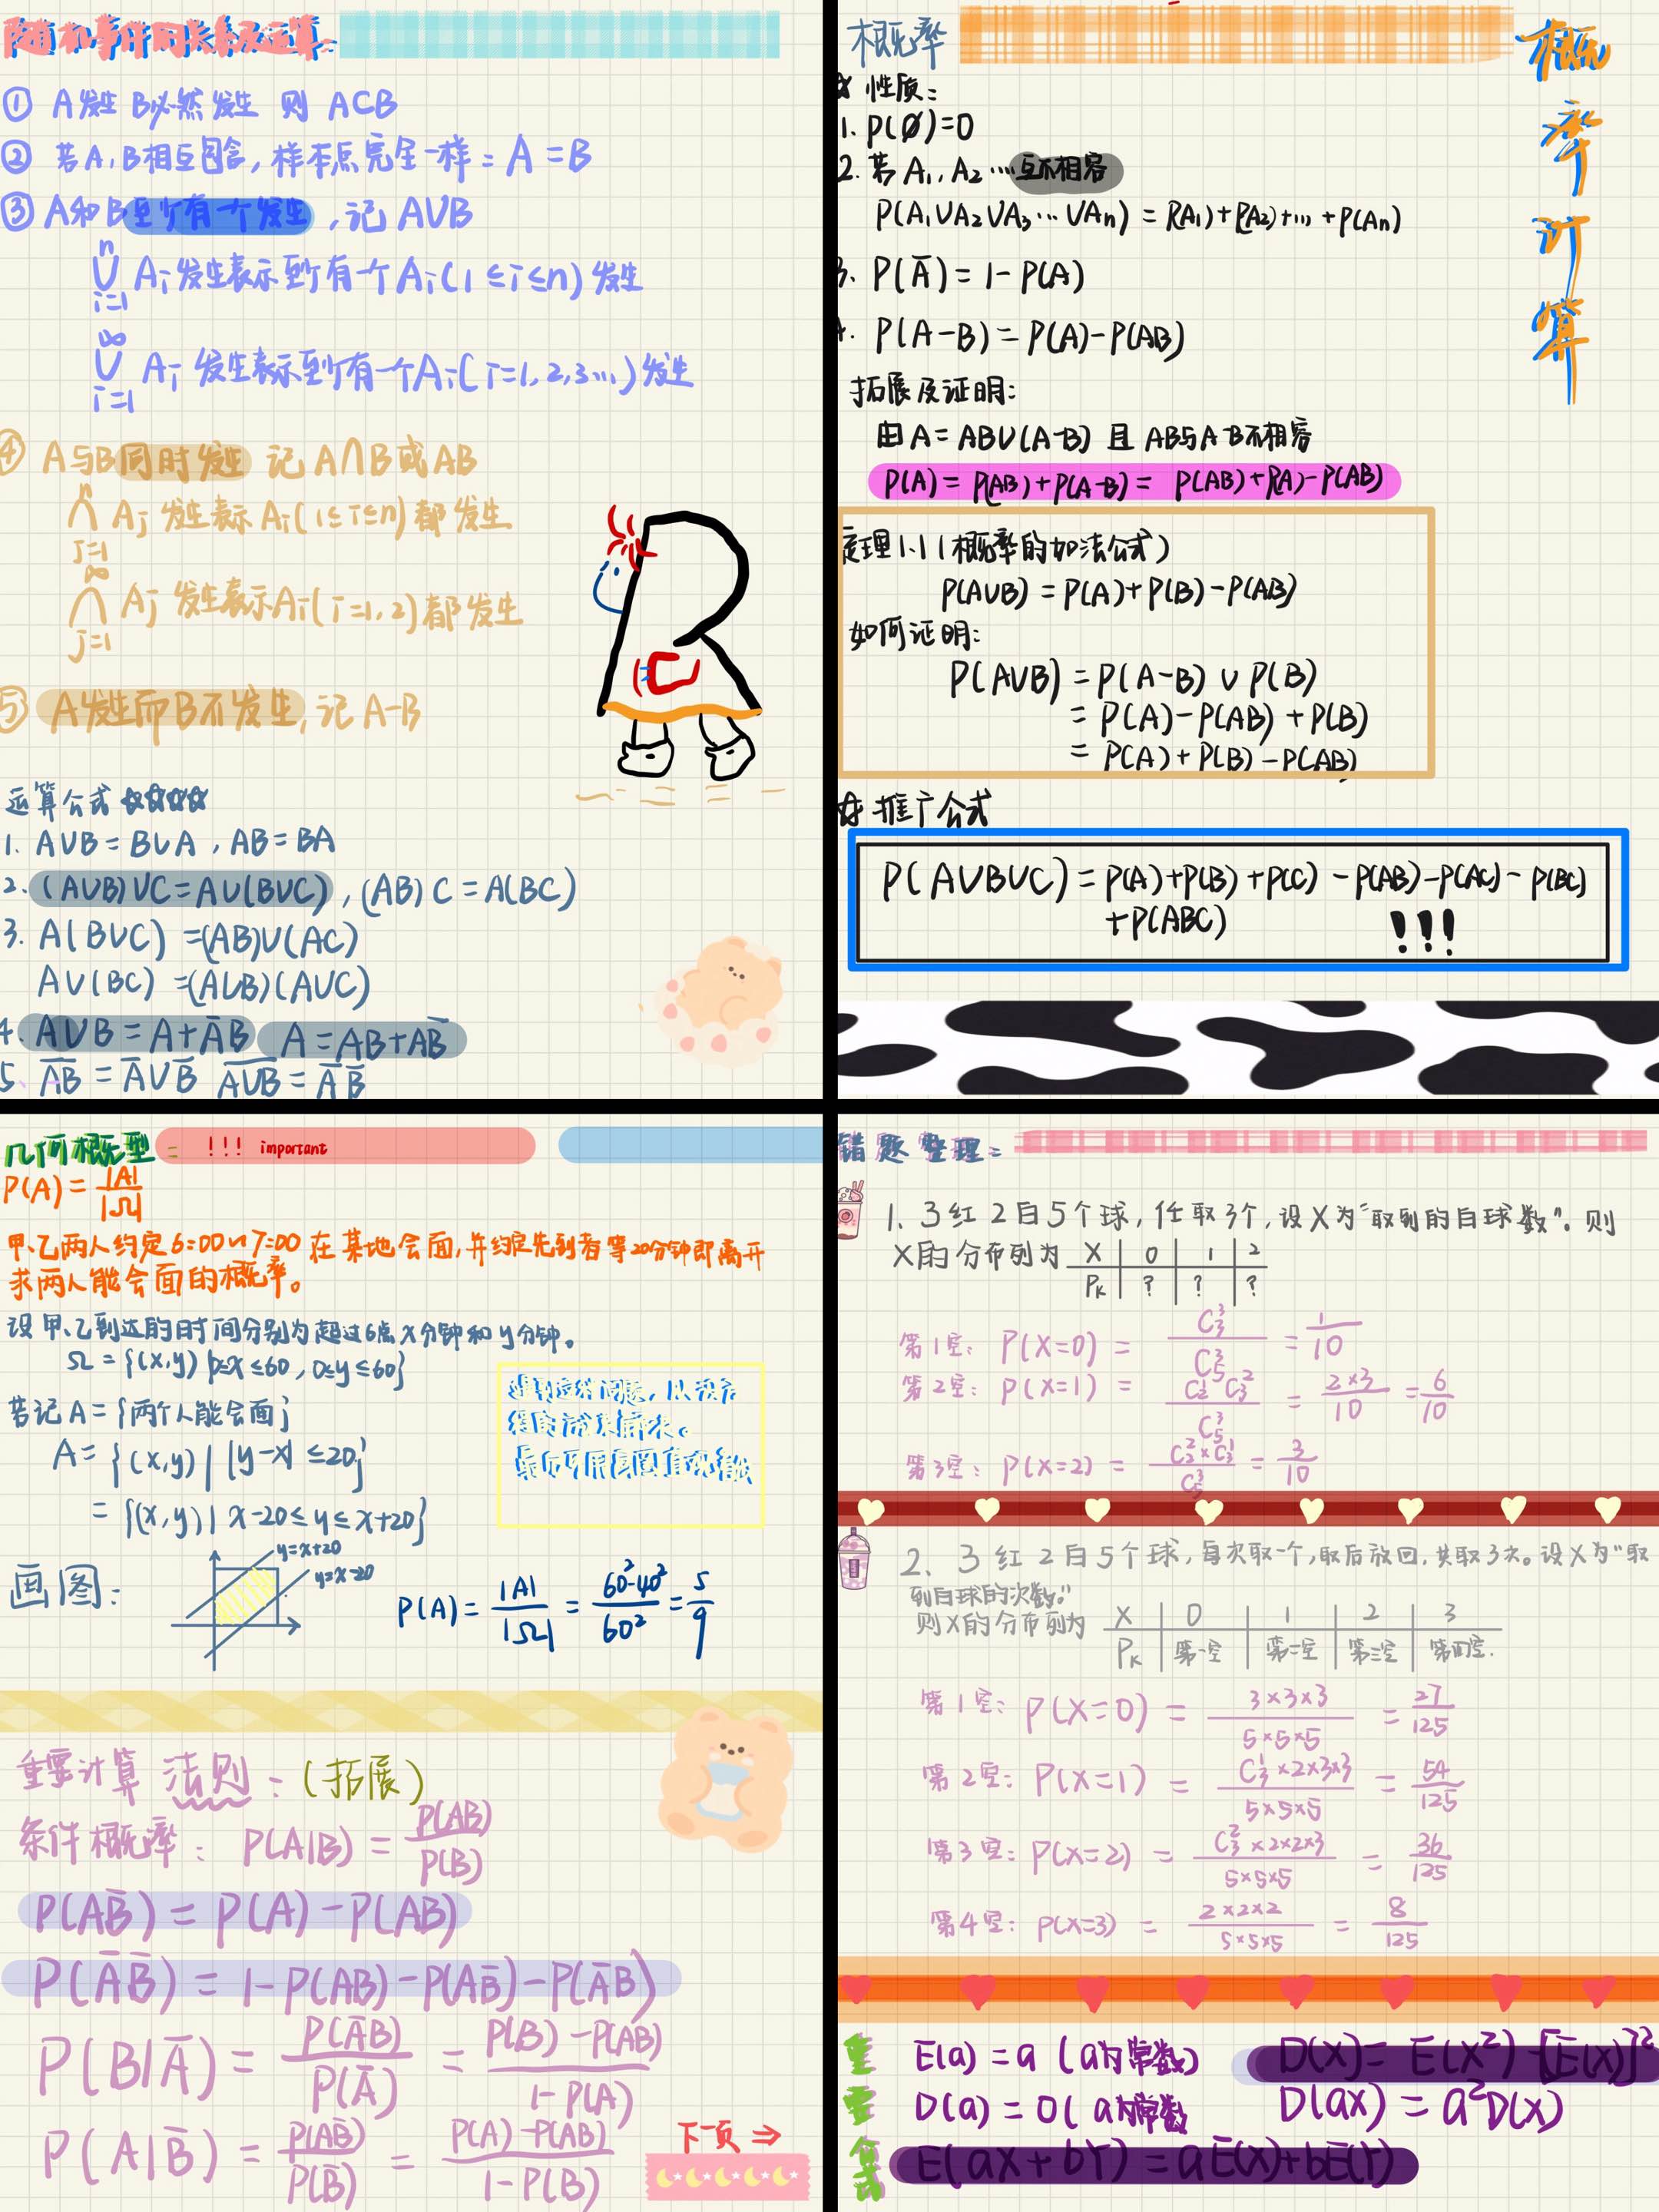 随机事件的关系及运算:
① A发生B必然发生 则 A⊂B
② 若A、B相互包含,样本点完全一样: A=B
③ A和B至少有一个发生,记 A∪B
n
∪ Ai 发生表示至少有一个Ai(1≤i≤n)发生
i=1
∞
∪ Ai 发生表示至少有一个Ai(i=1,2,3...)发生
i=1
④ A与B同时发生 记A∩B或AB
n
∩ Aj 发生表示Ai(1≤i≤n)都发生
j=1
∞
∩ Aj 发生表示Ai(i=1,2)都发生
j=1
⑤ A发生而B不发生,记A-B
运算公式 ☆☆☆☆
1. A∪B=B∪A , AB=BA
2. (A∪B)∪C=A∪(B∪C) , (AB)C=A(BC)
3. A(B∪C) =(AB)∪(AC)
A∪(BC) =(A∪B)(A∪C)
4. A∪B=A+A̅B A=AB+AB̅
5. A̅B̅ = A̅∪B̅ A̅∪̅B̅ = A̅ B̅
概率
概率计算
☆ 性质:
1. P(Ø)=0
2. 若A₁、A₂...互不相容
P(A₁∪A₂∪A₃...∪An) = P(A₁)+P(A₂)+...+P(An)
3. P(A̅)=1-P(A)
4. P(A-B)=P(A)-P(AB)
拓展及证明:
由A=AB∪(A-B) 且 AB与A-B不相容
P(A)= P(AB)+P(A-B)= P(AB)+P(A)-P(AB)
定理1.1(概率的加法公式)
P(A∪B)=P(A)+P(B)-P(AB)
如何证明:
P(A∪B)=P(A-B)∪P(B)
= P(A)-P(AB)+P(B)
= P(A)+P(B)-P(AB)
☆ 推广公式
P(A∪B∪C)=P(A)+P(B)+P(C)-P(AB)-P(AC)-P(BC)
+P(ABC) !!!
几何概型: !!! important
P(A)=|A|/|Ω|
甲、乙两人约定6:00~7:00在某地会面,并约定先到者等20分钟即离开
求两人能会面的概率。
设甲、乙到达的时间分别为超过6点x分钟和y分钟。
Ω={(x,y)|0≤x≤60,0≤y≤60}
若记A={两个人能会面}
A={(x,y)| |y-x|≤20}
={(x,y)| x-20≤y≤x+20}
画图:
y=x+20
y=x-20
P(A)=|A|/|Ω|=60²-40²/60²=5/9
重要计算法则:(拓展)
条件概率: P(A|B)=P(AB)/P(B)
P(AB̅)=P(A)-P(AB)
P(A̅B̅)=1-P(AB)-P(AB̅)-P(A̅B)
P(B|A̅)=P(A̅B)/P(A̅)=P(B)-P(AB)/1-P(A)
P(A|B̅)=P(AB̅)/P(B̅)=P(A)-P(AB)/1-P(B)
下一页⇒
错题整理:
1. 3红2白5个球,任取3个,设X为“取到的白球数”。则
X的分布列为 X 0 1 2
Pk ? ? ?
第1空: P(X=0)=C₃³/C₅³=1/10
第2空: P(X=1)=C₂¹C₃²/C₅³=2×3/10=6/10
第3空: P(X=2)=C₂²×C₃¹/C₅³=3/10
2. 3红2白5个球,每次取一个,取后放回,共取3次。设X为“取
到白球的次数。”
则X的分布列为 X 0 1 2 3
Pk 第一空 第二空 第三空 第四空.
第1空: P(X=0)=3×3×3/5×5×5=27/125
第2空: P(X=1)=C₃¹×2×3×3/5×5×5=54/125
第3空: P(X=2)=C₃²×2×2×3/5×5×5=36/125
第4空: P(X=3)=2×2×2/5×5×5=8/125
重要
E(a)=a (a为常数) D(X)=E(X²)-[E(X)]²
D(a)=0( a为常数 D(ax)=a²D(x)
E(aX+bY)=aE(X)+bE(Y)